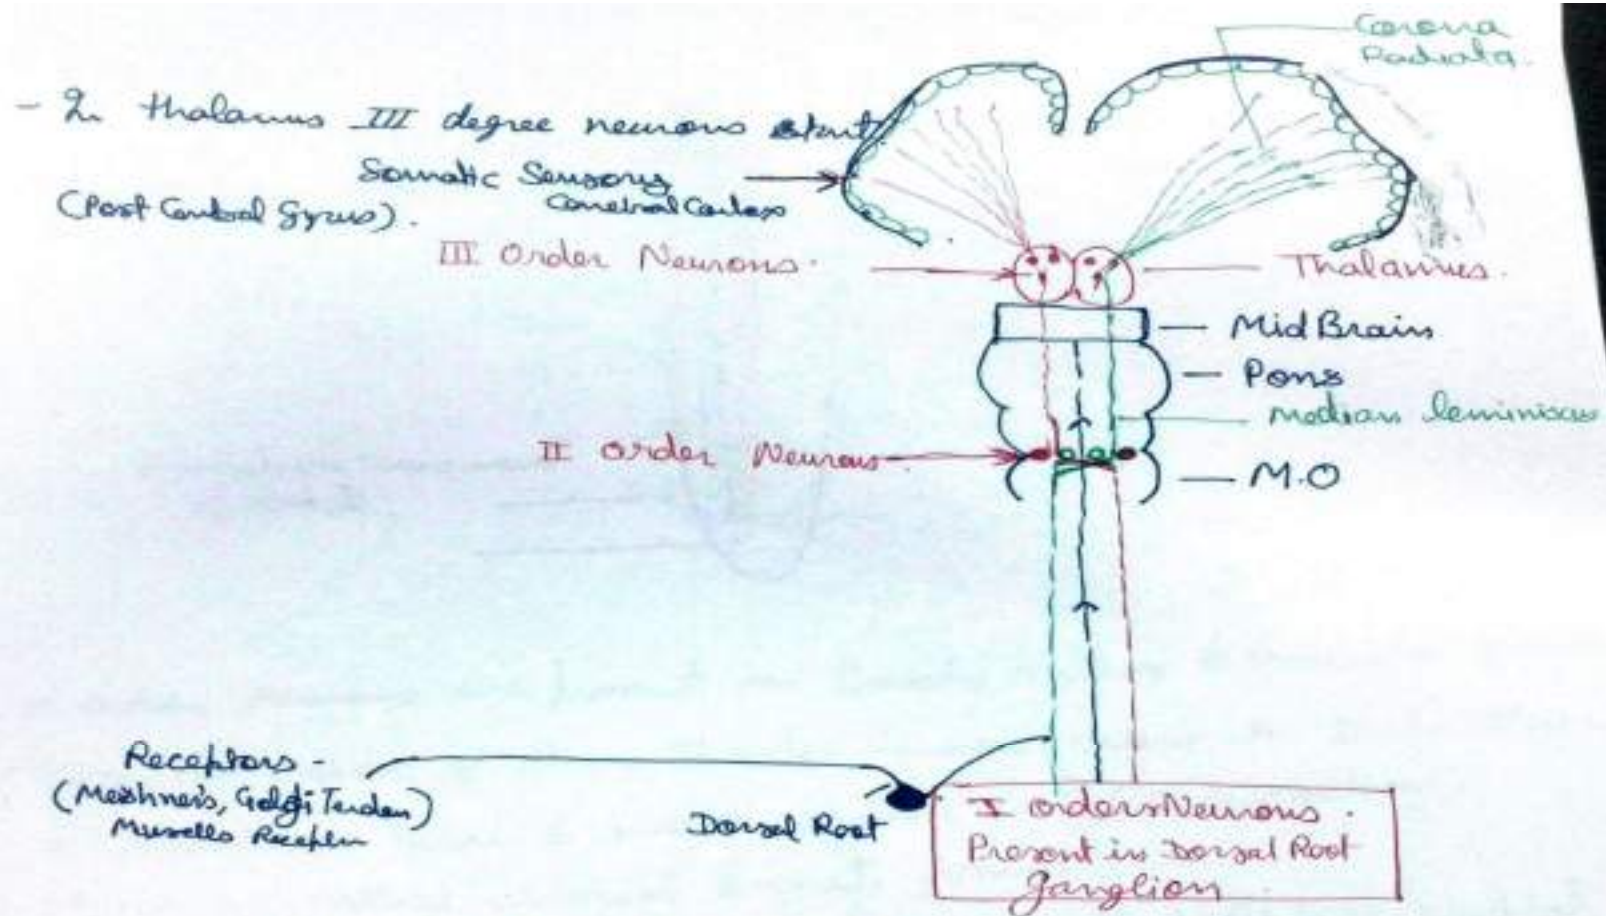 Corona
Radiata.
- In thalamus III degree neurons start
Somatic Sensory
Cerebral Cortex
(Post Central Gyrus).
III Order Neurons.
Thalamus.
Mid Brain
Pons
Median leminiscus
II Order Neurons
M.O
Receptors -
(Meishner's, Golgi Tendon)
Muscle Receptor
Dorsal Root
I orders Neurons.
Present in Dorsal Root
Ganglion